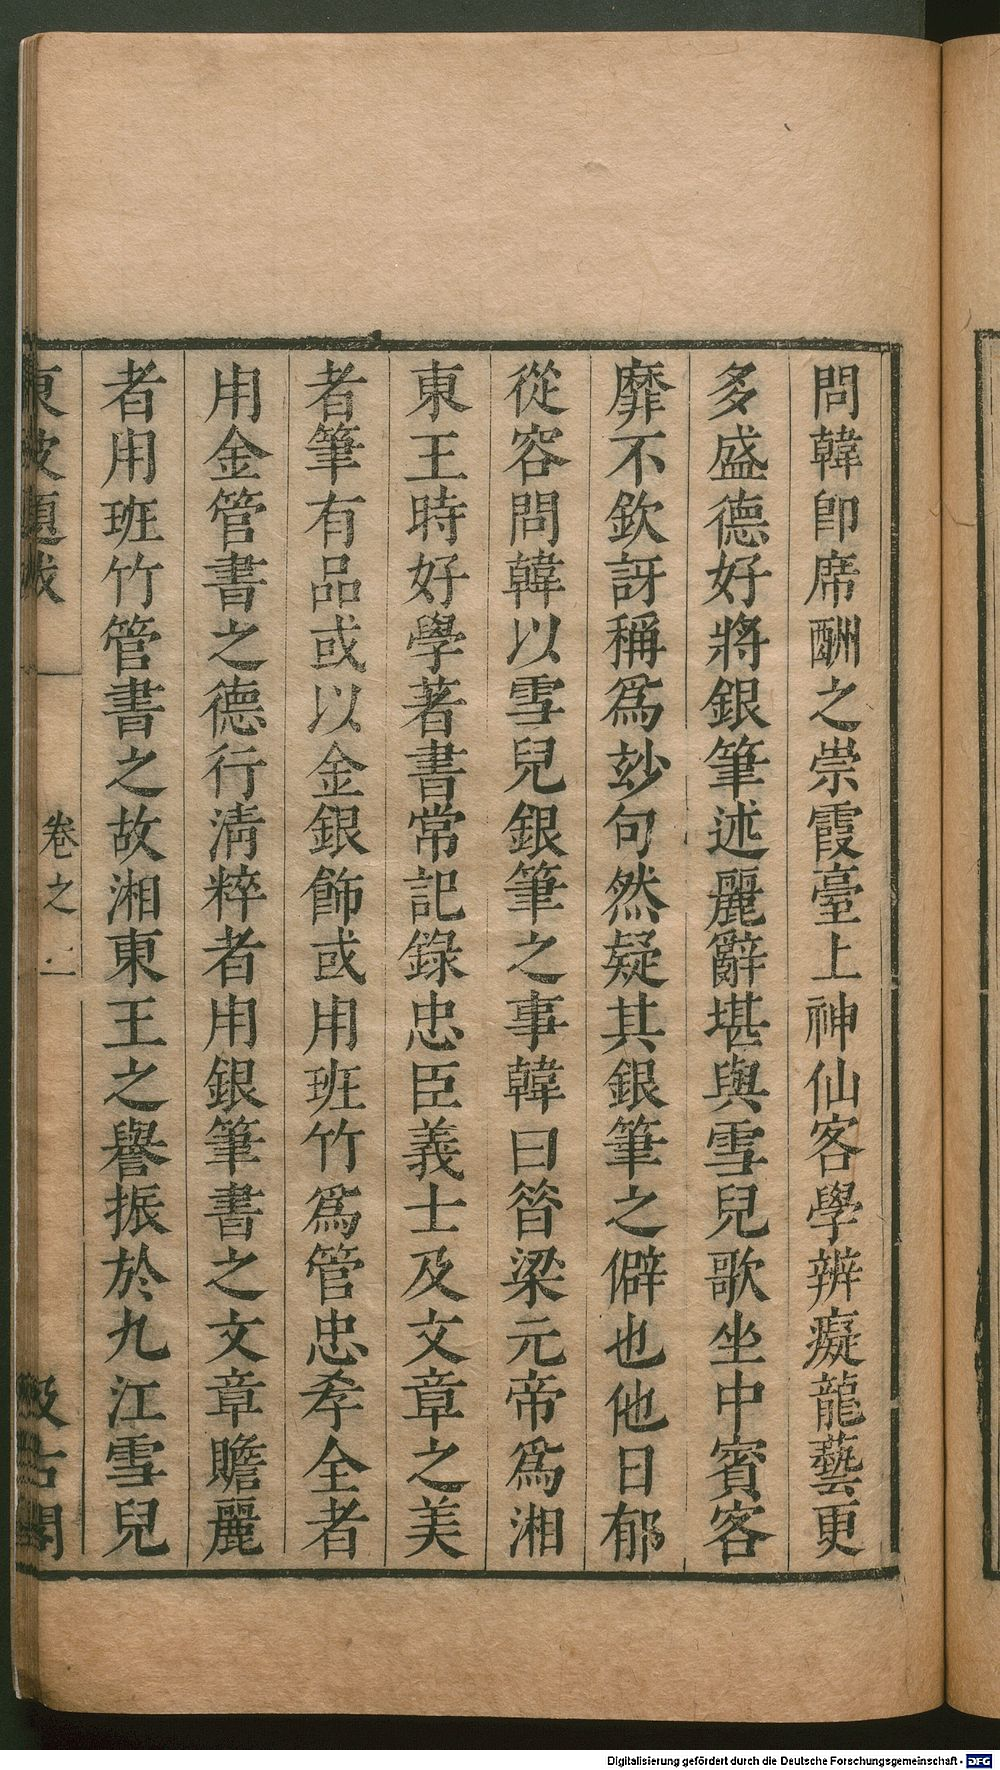 問韓卽席酬之崇霞臺上神仙客學辨癡龍藝更
多盛德好將銀筆述麗辭堪與雪兒歌坐中賓客
靡不欽訝稱爲玅句然疑其銀筆之僻也他日郁
從容問韓以雪兒銀筆之事韓曰昝梁元帝爲湘
東王時好學著書常記錄忠臣義士及文章之美
者筆有品或以金銀飾或用班竹爲管忠孝全者
用金管書之德行淸粹者用銀筆書之文章贍麗
者用班竹管書之故湘東王之譽振於九江雪兒
東坡題跋
卷之
汲古閣
Digitalisierung gefördert durch die Deutsche Forschungsgemeinschaft - DFG